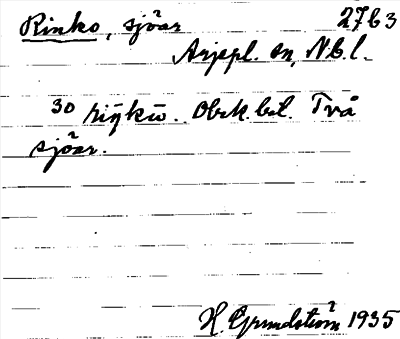 Rinko, sjöar 27b3
Arjepl. sn, N.b.l.
30 riŋ̄kō. Obek. bet. Två
sjöar.
H. Grundström 1935